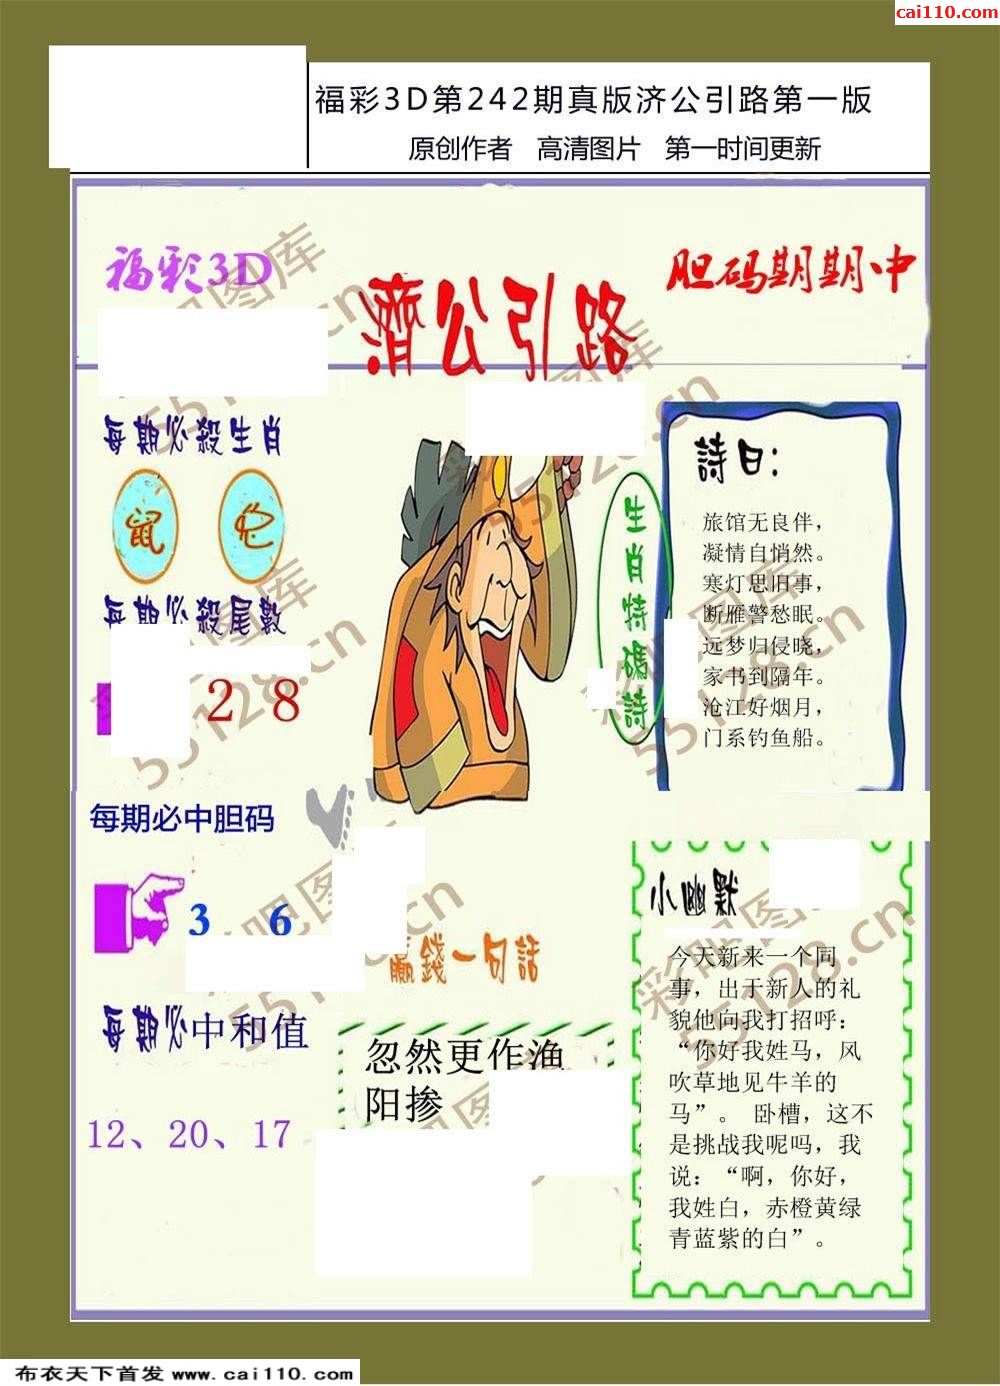 cai110.com
福彩3D第242期真版济公引路第一版
原创作者 高清图片 第一时间更新
福彩3D
濟公引路
胆码期期中
每期必殺生肖
鼠
每期必殺尾數
2 8
每期必中胆码
3 6
每期必中和值
12、20、17
生肖特碼詩
詩曰:
旅馆无良伴，
凝情自悄然。
寒灯思旧事，
断雁警愁眠。
远梦归侵晓，
家书到隔年。
沧江好烟月，
门系钓鱼船。
赢錢一句話
忽然更作渔
阳掺
小幽默
今天新来一个同
事，出于新人的礼
貌他向我打招呼：
“你好我姓马，风
吹草地见牛羊的
马”。 卧槽，这不
是挑战我呢吗，我
说：“啊，你好，
我姓白，赤橙黄绿
青蓝紫的白”。
彩吧图库
55128.cn
布衣天下首发 www.cai110.com